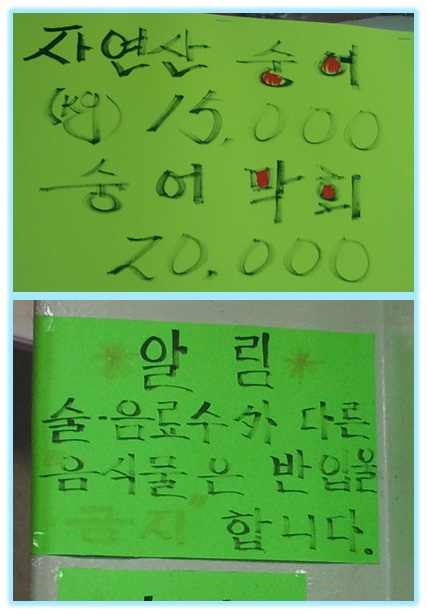 자연산 숭어
(kg) 15,000
숭어 막회
20,000
알 림
술·음료수 外 다른
음식물은 반입을
금지 합니다.